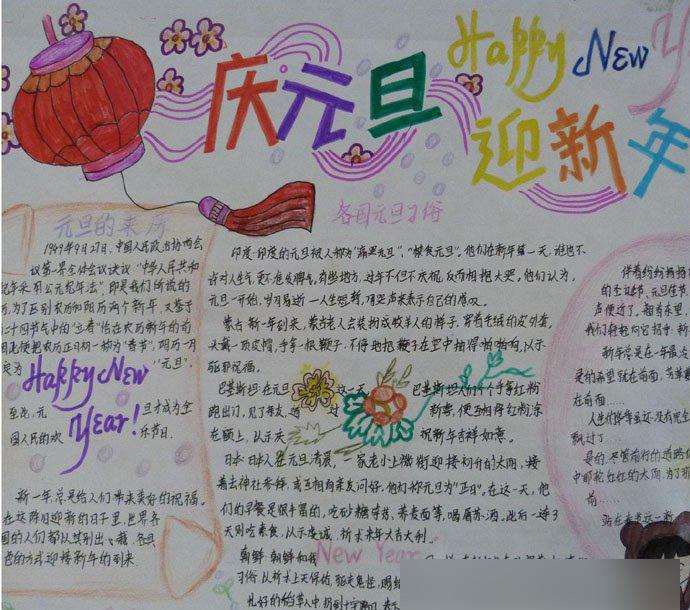 Happy New Y
庆元旦
迎新年
元旦的来历
1949年9月27日,中国人民政治协商会
议第一届全体会议决议"中华人民共和
纪年采用公元纪年法",即是我们所说的
历,为了区别农历和阳历两个新年,又鉴于
二十四节气中的"立春"恰在农历新年的前
因此便把农历正月初一称为"春节",阳历一月
定为"元旦"。
Happy New
Year!
至此,元旦才成为全
国人民的欢乐节日.
新一年,总是给人们带来美好的祝福。
在这辞旧迎新的日子里,世界各
国的人们都以其别出心裁、各具
色的方式迎接新年的到来.
各国元旦习俗
印度·印度的元旦被人称为"痛哭元旦"、"禁食元旦"。他们在新年第一天,谁也不
许对人生气,更不准发脾气。有些地方,过年不但不庆祝,反而相抱大哭。他们认为,
元旦一开始,岁月易逝,人生短暂,用哭声来表示自己的感叹。
蒙古 新一年到来,蒙古老人会装扮成牧羊人的样子,穿着毛绒绒的皮外套,
头戴一顶皮帽,手拿一根鞭子,不停地把鞭子在空中抽得啪啪响,以示
驱邪祝福.
巴基斯坦:在元旦这一天,巴基斯坦人个个手拿红粉
跑出门,见了亲友,道过新喜,便互相将红粉涂
在额上,以示庆祝新年吉祥如意.
日本·日本人在元旦清晨,一家老小上街迎接初升的太阳,接
着去神社参拜,或互相向亲友问好.他们称元旦为"正日"。在这一天,他
们的早餐是很丰富的,吃砂糖芋艿、荞麦面等,喝屠苏酒.此后一连3
天则吃素食,以示虔诚,祈求来年大吉大利.
New Year
习俗,以祈求上天保佑,驱走鬼怪,赐给
伴着纷纷扬扬
的圣诞节、元旦佳节
声便过了.
新年总是在一年最
灵的希望就在前面,
在前面……
飘过了
前……
站在